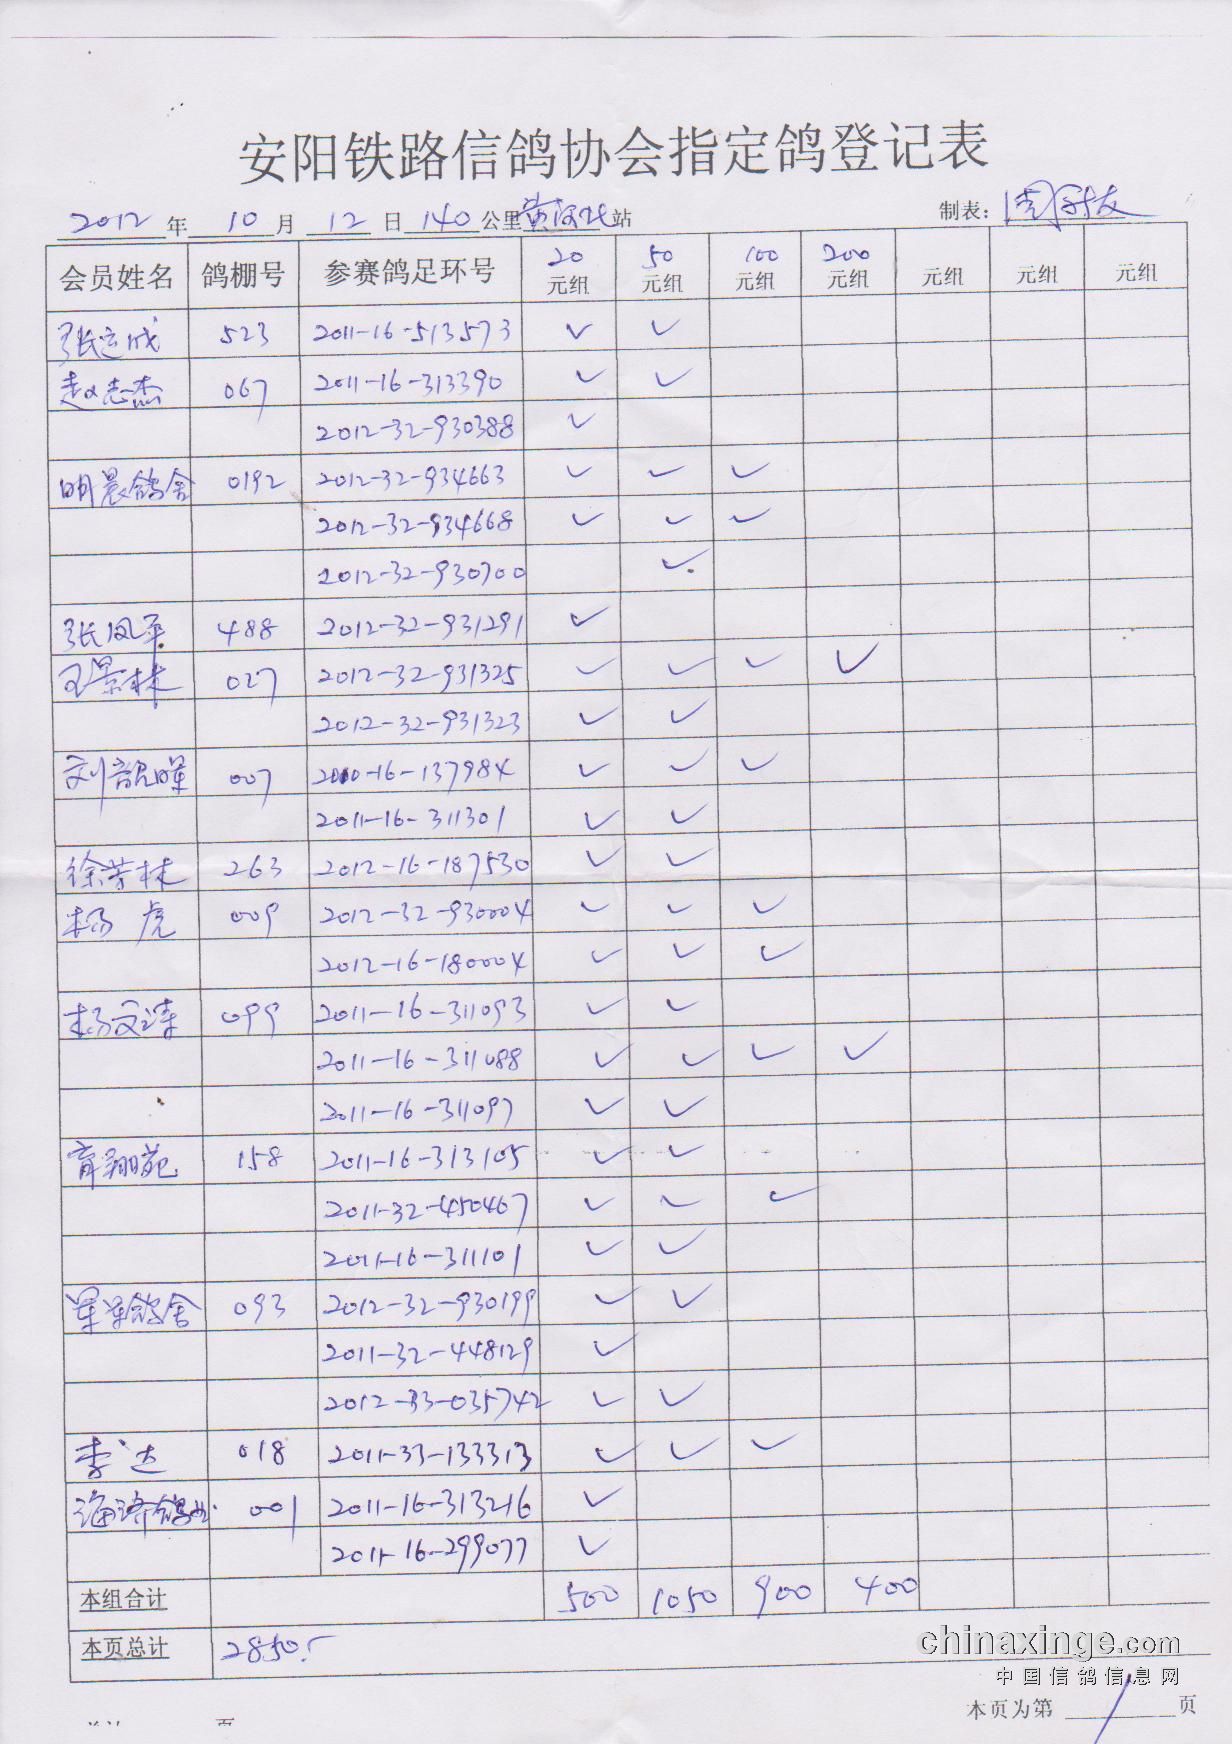 安阳铁路信鸽协会指定鸽登记表
2012年10月12日140公里黄河北站 制表:
会员姓名 鸽棚号 参赛鸽足环号 20元组 50元组 100元组 200元组 元组 元组 元组
张运成 523 2011-16-513573 ✓ ✓
赵志杰 067 2011-16-313390 ✓ ✓
2012-32-930388 ✓
明晨鸽舍 0192 2012-32-934663 ✓ ✓ ✓
2012-32-934668 ✓ ✓ ✓
2012-32-930700 ✓
张凤平 488 2012-32-931291 ✓
王景林 027 2012-32-931325 ✓ ✓ ✓ ✓
2012-32-931323 ✓ ✓
刘韶晖 007 2010-16-137984 ✓ ✓ ✓
2011-16-311301 ✓ ✓
徐芳林 263 2012-16-187530 ✓ ✓
杨虎 009 2012-32-930004 ✓ ✓ ✓
2012-16-180004 ✓ ✓ ✓
杨文涛 099 2011-16-311093 ✓ ✓
2011-16-311088 ✓ ✓ ✓ ✓
2011-16-311097 ✓ ✓
育翔苑 158 2011-16-313105 ✓ ✓
2011-32-450467 ✓ ✓ ✓
2011-16-311101 ✓ ✓
军军鸽舍 093 2012-32-930199 ✓ ✓
2011-32-448129 ✓
2012-33-035742 ✓ ✓
李达 018 2011-33-133313 ✓ ✓ ✓
001 2011-16-313216 ✓
2011-16-299077 ✓
本组合计 500 1050 900 400
本页总计 2850.-
chinaxinge.com
中国信鸽信息网
本页为第 1 页